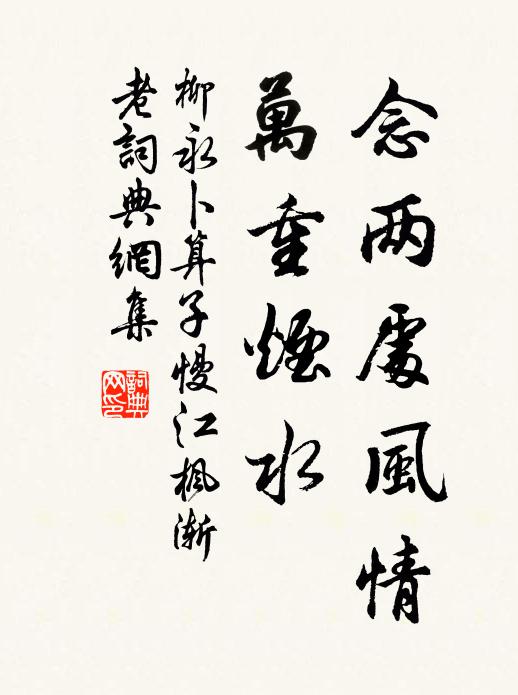 念两處風情
萬重煙水
柳永卜算子慢江楓漸
老詞典網集
詞典
网印